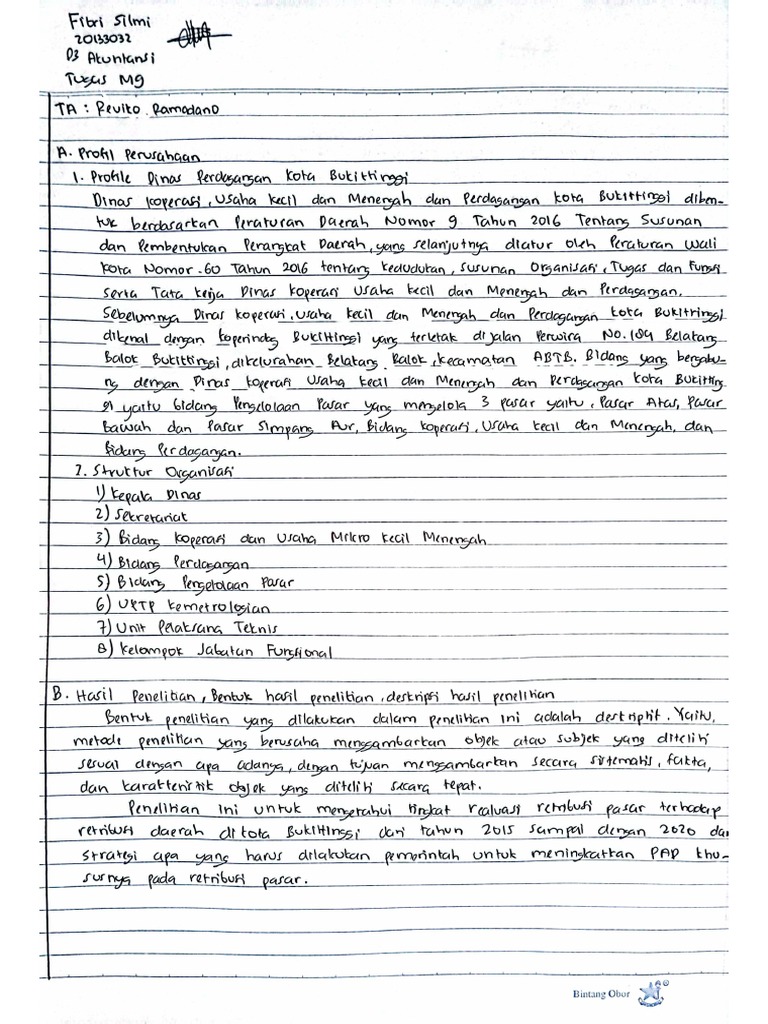 Fibri Silmi
20133032
D3 Akuntansi
Tugas M9
TA : Revito Ramadano
A. Profil Perusahaan
1. Profile Dinas Perdagangan Kota Bukittinggi
Dinas koperasi, Usaha kecil dan Menengah dan Perdagangan kota Bukittinggi diben-
tuk berdasarkan Peraturan Daerah Nomor 9 Tahun 2016 Tentang Susunan
dan Pembentukan Perangkat Daerah, yang selanjutnya diatur oleh Peraturan Wali
kota Nomor-60 Tahun 2016 tentang kedudukan, susunan Organisasi, Tugas dan Fungsi
serta Tata kerja Dinas koperasi Usaha kecil dan Menengah dan Perdagangan.
Sebelumnya Dinas koperasi, Usaha kecil dan Menengah dan Perdagangan kota Bukittinggi
dikenal dengan koperindag Bukittinggi yang terletak di jalan Perwira No.184 Belatang
Balok Bukittinggi, dikelurahan Belatang Balok, kecamatan ABTB. Bidang yang bergabu-
ng dengan Dinas koperasi Usaha kecil dan Menengah dan Perdagangan kota Bukitting
gi yaitu bidang Pengelolaan Pasar yang mengelola 3 pasar yaitu, Pasar Atas, Pasar
Bawah dan Pasar Simpang Aur, Bidang koperasi, Usaha kecil dan Menengah, dan
Bidang Perdagangan.
2. Struktur Organisasi
1) kepala Dinas
2) Sekretariat
3) Bidang koperasi dan Usaha Mikro kecil Menengah
4) Bidang Perdagangan
5) Bidang Pengelolaan Pasar
6) UPTP kemetrologian
7) Unit Pelaksana Teknis
8) kelompok Jabatan Fungsional
B. Hasil Penelitian, Bentuk hasil penelitian, deskripsi hasil penelitian
Bentuk penelitian yang dilakukan dalam penelitian ini adalah deskriptif. Yaitu,
metode penelitian yang berusaha menggambarkan objek atau subjek yang diteliti
sesuai dengan apa adanya, dengan tujuan menggambarkan secara sistematis, fakta,
dan karakteristik objek yang diteliti secara tepat.
Penelitian ini untuk mengetahui tingkat realisasi retribusi pasar terhadap
retribusi daerah di kota Bukittinggi dari tahun 2015 sampai dengan 2020 dan
strategi apa yang harus dilakukan pemerintah untuk meningkatkan PAD khu-
susnya pada retribusi pasar.
Bintang Obor